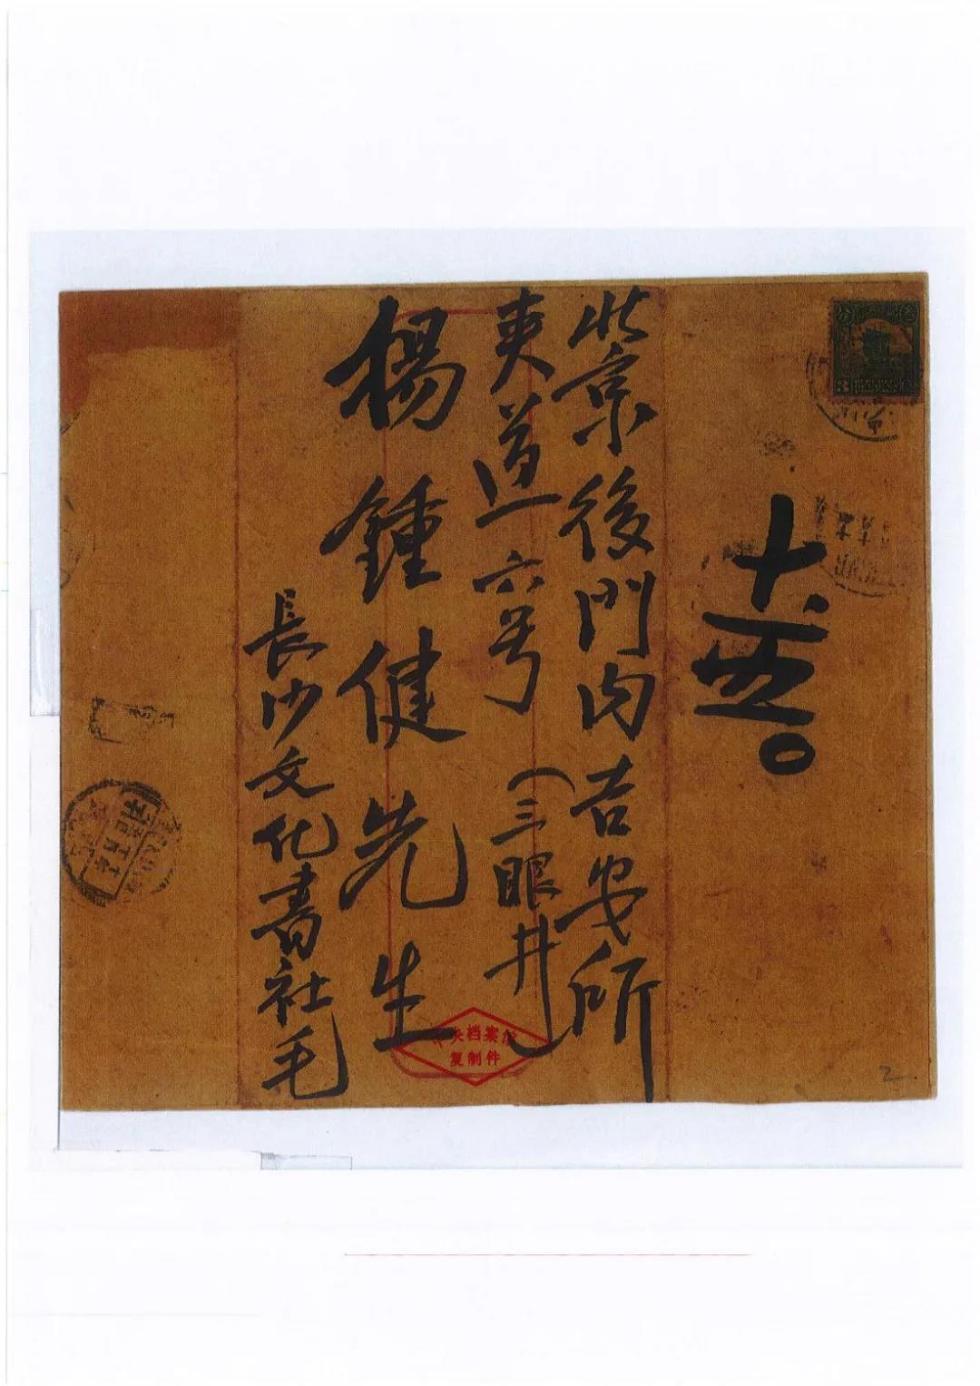 北京後門内吉安所
夾道六号（三眼井
楊鍾健先生
長沙文化書社毛
央档案
复制件
3
2